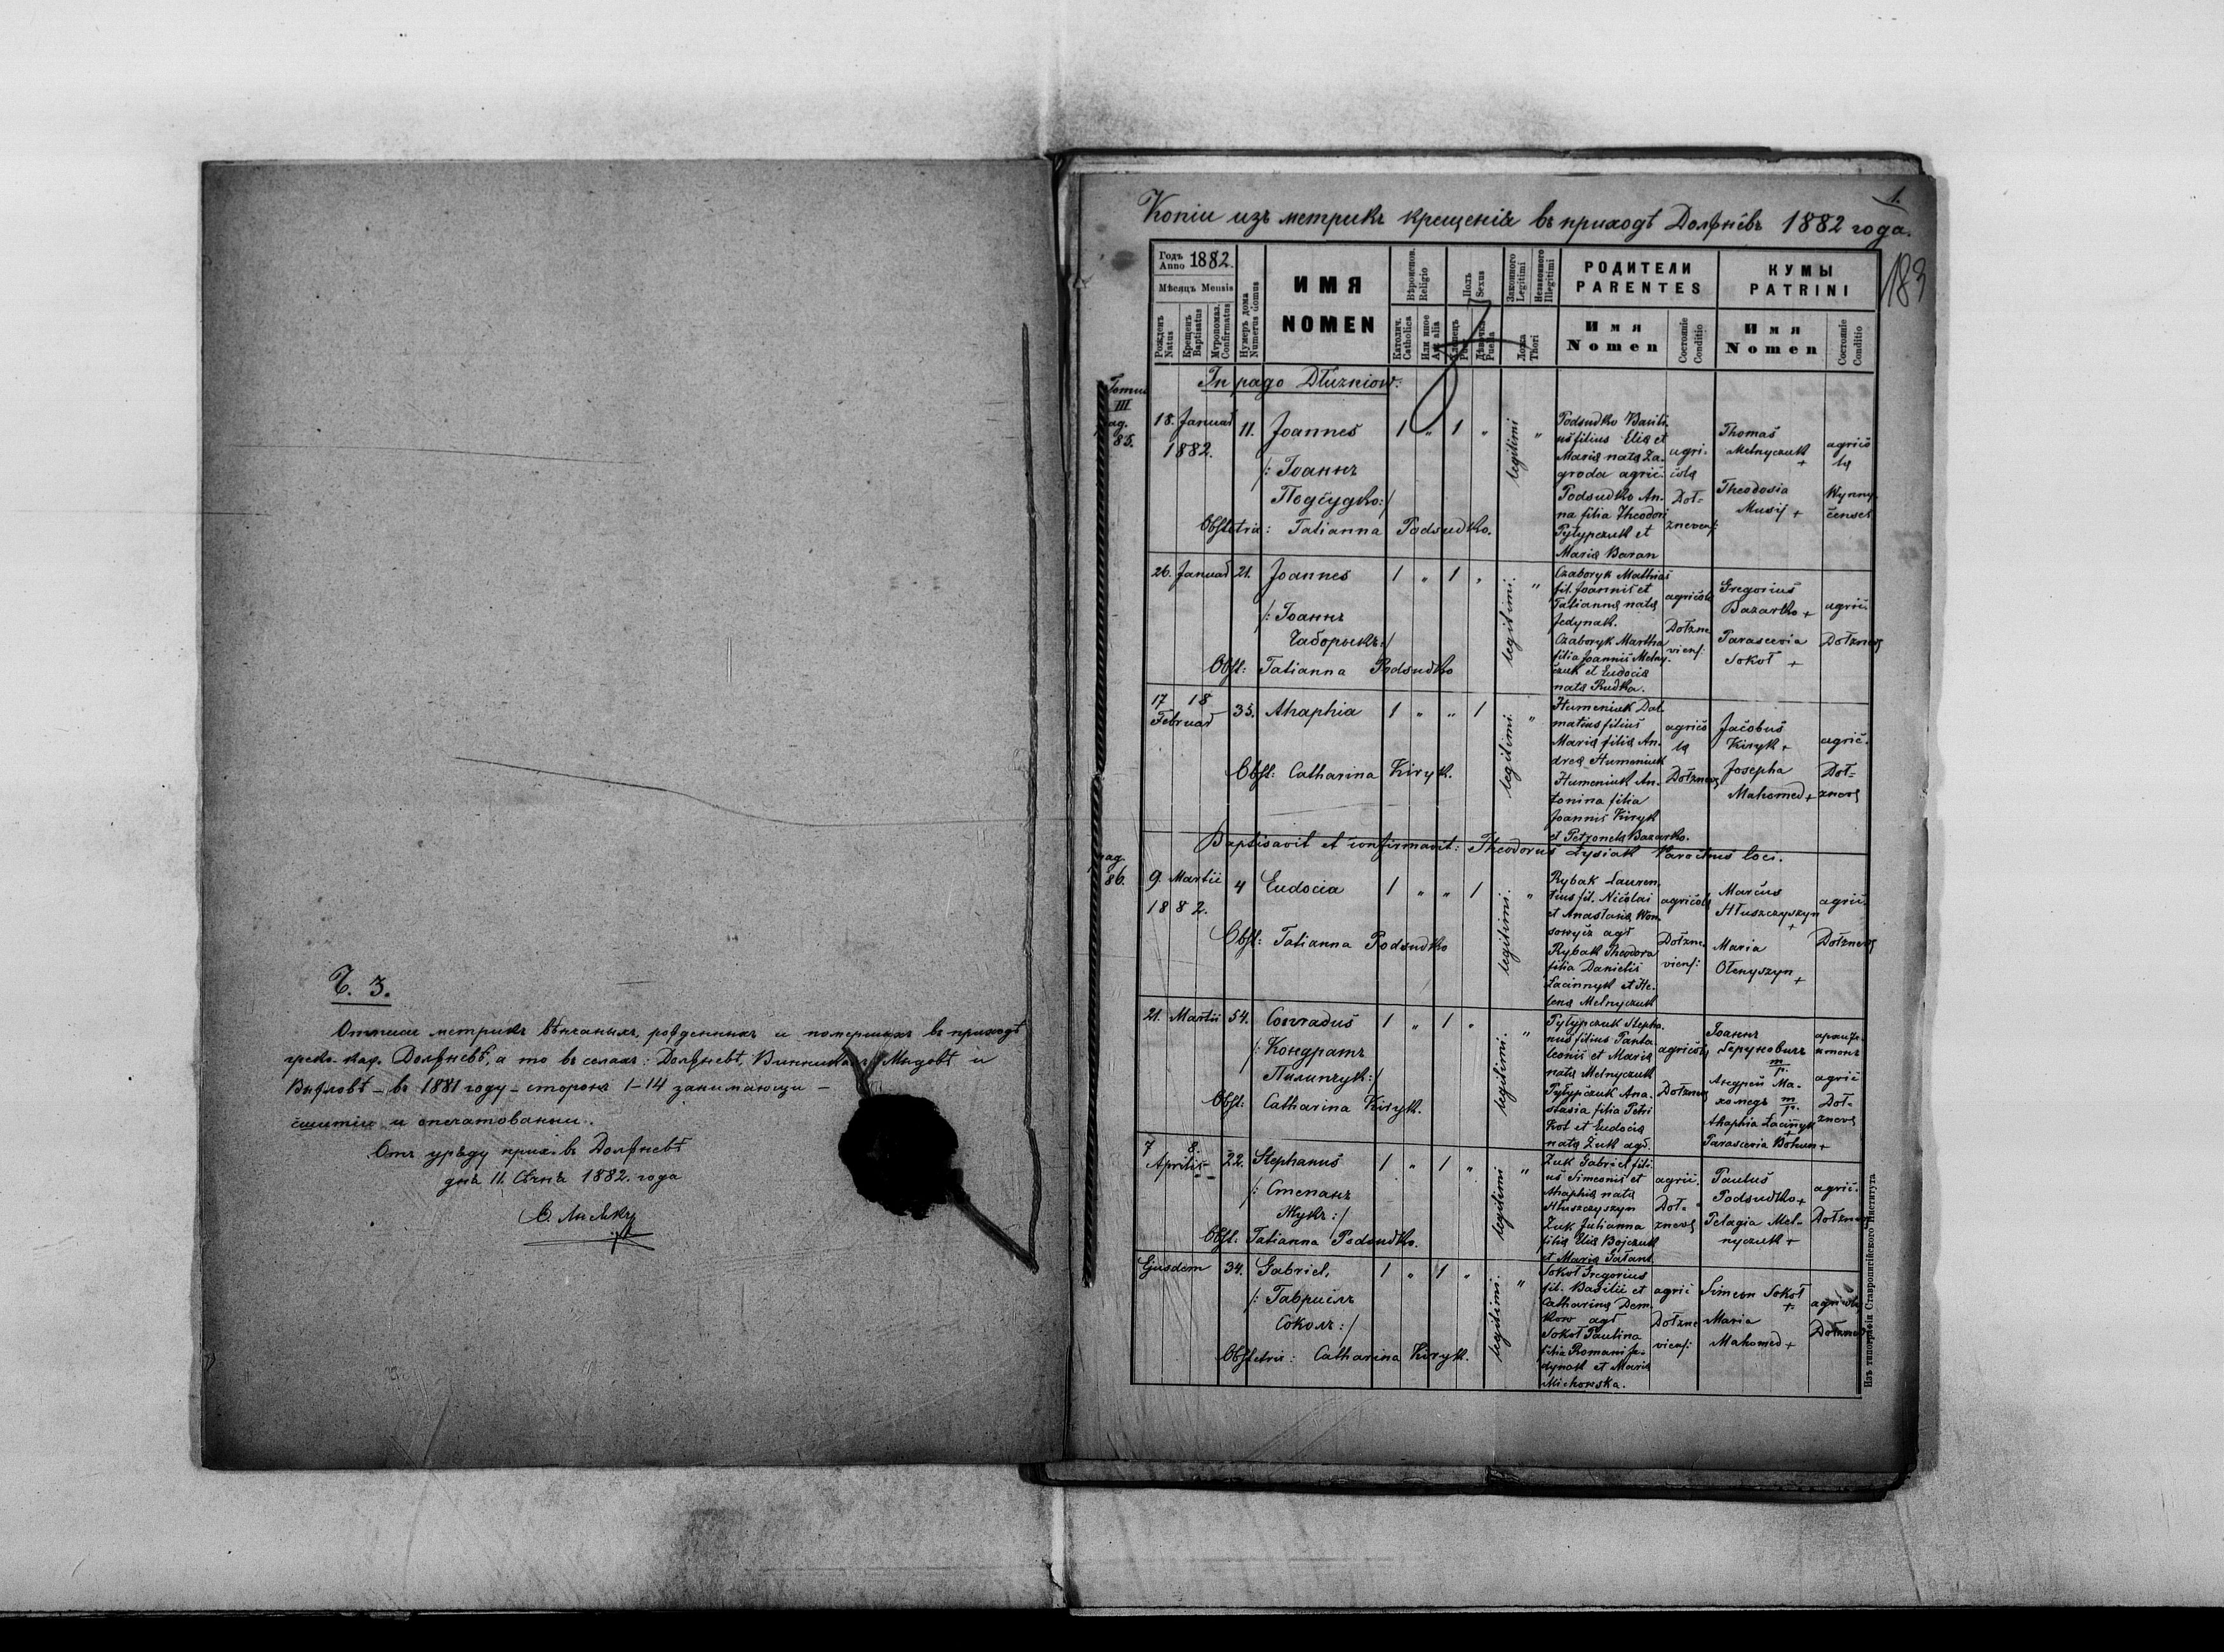 Ч. 3.
Отписи метрикъ вѣнчаныхъ, рожденныхъ и помершихъ въ приходѣ
греко. каѳ. Должневѣ, а то въ селахъ: Должневѣ, Винникахъ, Мыцовѣ и
въ 1881 году – сторонъ 1–14 занимающи –
сшитіи и опечатованыи.
Отъ уряду прих. въ Должневѣ
дня 11. Сѣчня 1882. года
1.
Копіи изъ метрикъ крещенія въ приходѣ Должнѣвъ 1882 года.
183
Годъ Anno 1882.
Мѣсяцъ Mensis
Рожденъ Natus
Крещенъ Baptisatus
Мѵропомаз. Confirmatus
Нумеръ дома Numerus domus
ИМЯ
NOMEN
Вѣроиспов. Religio
Католич. Catholica
Или иное Aut alia
Полъ Sexus
Хлопецъ Puer
Дѣвочка Puella
Законного Legitimi
Незаконного Illegitimi
Ложа Thori
РОДИТЕЛИ
PARENTES
Имя
Nomen
Состояніе
Conditio
КУМЫ
PATRINI
Имя
Nomen
Состояніе
Conditio
Tomus
III
pag.
85.
In pago Dłużniow.
18. Januar 11. Joannes 1 " 1 " legitimi "
1882.
/: Іоаннъ
Подсудко:/
Obstetrix: Tatianna Podsudko.
Podsudko Basili-
us filius Eliæ et
Mariæ natæ Za-
groda agric.
Podsudko An-
na filia Theodori
Pyłypczuk et
Mariæ Baran
agri-
colæ
Doł-
znevens:
Thomas
Melnyczuk
+
Theodosia
Musij +
agrico
læ
Wynny-
censes
26. Januar 21. Joannes 1 " 1 " legitimi. "
/: Іоаннъ
Чаборыкъ:/
Obst: Tatianna Podsudko
Czaboryk Mathias
fil. Joannis et
Tatiannæ natæ
Fedynak.
Czaboryk Martha
filia Joannis Melny-
czuk et Eudociæ
natæ Rudka.
agricolæ
Dołzne
viens:
Gregorius
Bazarko +
Parascevia
Sokoł +
agric.
Dołznevs
17 18 Februar 35. Ahaphia 1 " " 1 legitimi. "
Obst: Catharina Kiryk.
Humeniuk Dal-
matius filius
Mariæ filiæ An-
dreæ Humeniuk
Humeniuk An-
tonina filia
Joannis Kiryk
et Petronelæ Bazarko.
agrico
læ
Dołznevs
Jacobus
Kiryk +
Josepha
Mahomed +
agric.
Doł-
znevs
Baptisavit et confirmavit: Theodorus Łysiak Parochus loci.
pag.
86.
9 Martii 4 Eudocia 1 " " 1 legitimi. "
1882.
Obst: Tatianna Podsudko
Rybak Lauren-
tius fil. Nicolai
et Anastasiæ Won-
sowycz agr
Rybak Theodora
filia Danielis
Łacinnyk et He-
lenæ Melnyczuk
agricolæ
Dołzne
viens:
Marcus
Hłuszczyszyn
+
Maria
Ołenyszyn +
agric.
Dołznevs
21. Martii 54. Conradus 1 " 1 " legitimi. "
/: Кондратъ
Пилипчук:/
Obst: Catharina Kiryk.
Pyłypczuk Stepha-
nus filius Panta-
leonis et Mariæ
natæ Melnyczuk
Pyłypczuk Ana-
stasia filia Petri
Kot et Eudociæ
natæ Zuk agr.
agricolæ
Dołznevs
Іоаннъ
m/p.
Андрей Ма-
хомедъ m/p.
Ahaphia Łacinnyk
+
Parascevia Bohun +
agric
Doł-
znevs
7 8. Aprilis 22. Stephanus 1 " 1 " legitimi "
/: Степанъ
Жукъ:/
Obst. Tatianna Podsudko.
Zuk Gabriel fili-
us Simeonis et
Ahaphiæ natæ
Hłuszczyszyn
Zuk Julianna
filia Eliæ Bojczuk
et Mariæ Gałant.
agric.
Doł-
znevs
Paulus
Podsudko +
Pelagia Mel-
nyczuk +
agric.
Dołznevs
Ejusdem 34. Gabriel, 1 " 1 " legitimi. "
/: Гавриілъ
Соколъ:/
Obstetrix: Catharina Kiryk.
Sokoł Gregorius
fil. Basilii et
Catharinæ Dem-
kow agr
Sokoł Paulina
filia Romani Fe-
dynak et Mariæ
Michowska.
agric
Dołzne
viens:
Simeon Sokoł
+
Maria
Mahomed +
agricolæ
Dołznevs
Изъ типографіи Ставропигійского Института